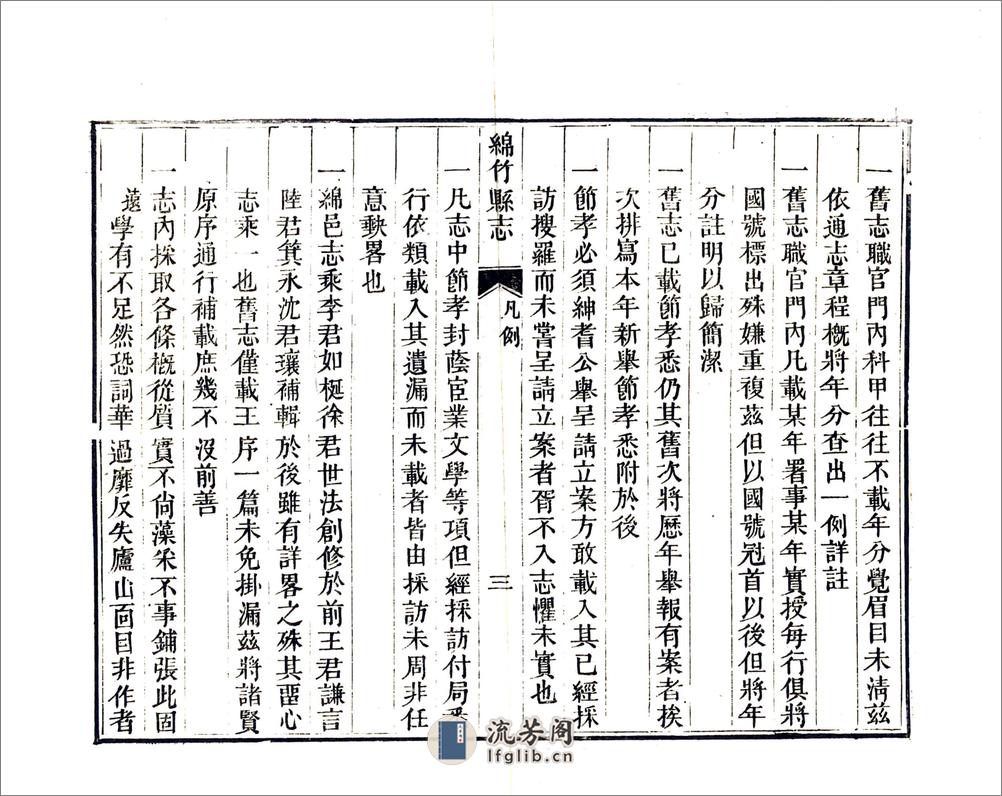 一舊志職官門內科甲往往不載年分覺眉目未清茲
依通志章程概將年分查出一例詳註
一舊志職官門內凡載某年署事某年實授每行俱將
國號標出殊嫌重複茲但以國號冠首以後但將年
分註明以歸簡潔
一舊志已載節孝悉仍其舊次將歷年舉報有案者挨
次排寫本年新舉節孝悉附於後
一節孝必須紳耆公舉呈請立案方敢載入其已經採
訪搜羅而未嘗呈請立案者胥不入志懼未實也
綿竹縣志
凡例
三
一凡志中節孝封蔭宦業文學等項但經採訪付局悉
行依類載入其遺漏而未載者皆由採訪未周非任
意缺畧也
一綿邑志乘李君如梴徐君世法創修於前王君謙言
陸君箕永沈君瓖補輯於後雖有詳畧之殊其畱心
志乘一也舊志僅載王序一篇未免掛漏茲將諸賢
原序通行補載庶幾不沒前善
一志內採取各條概從質實不尙藻釆不事鋪張此固
遠學有不足然恐詞華過靡反失廬山面目非作者
流芳阁
lfglib.cn